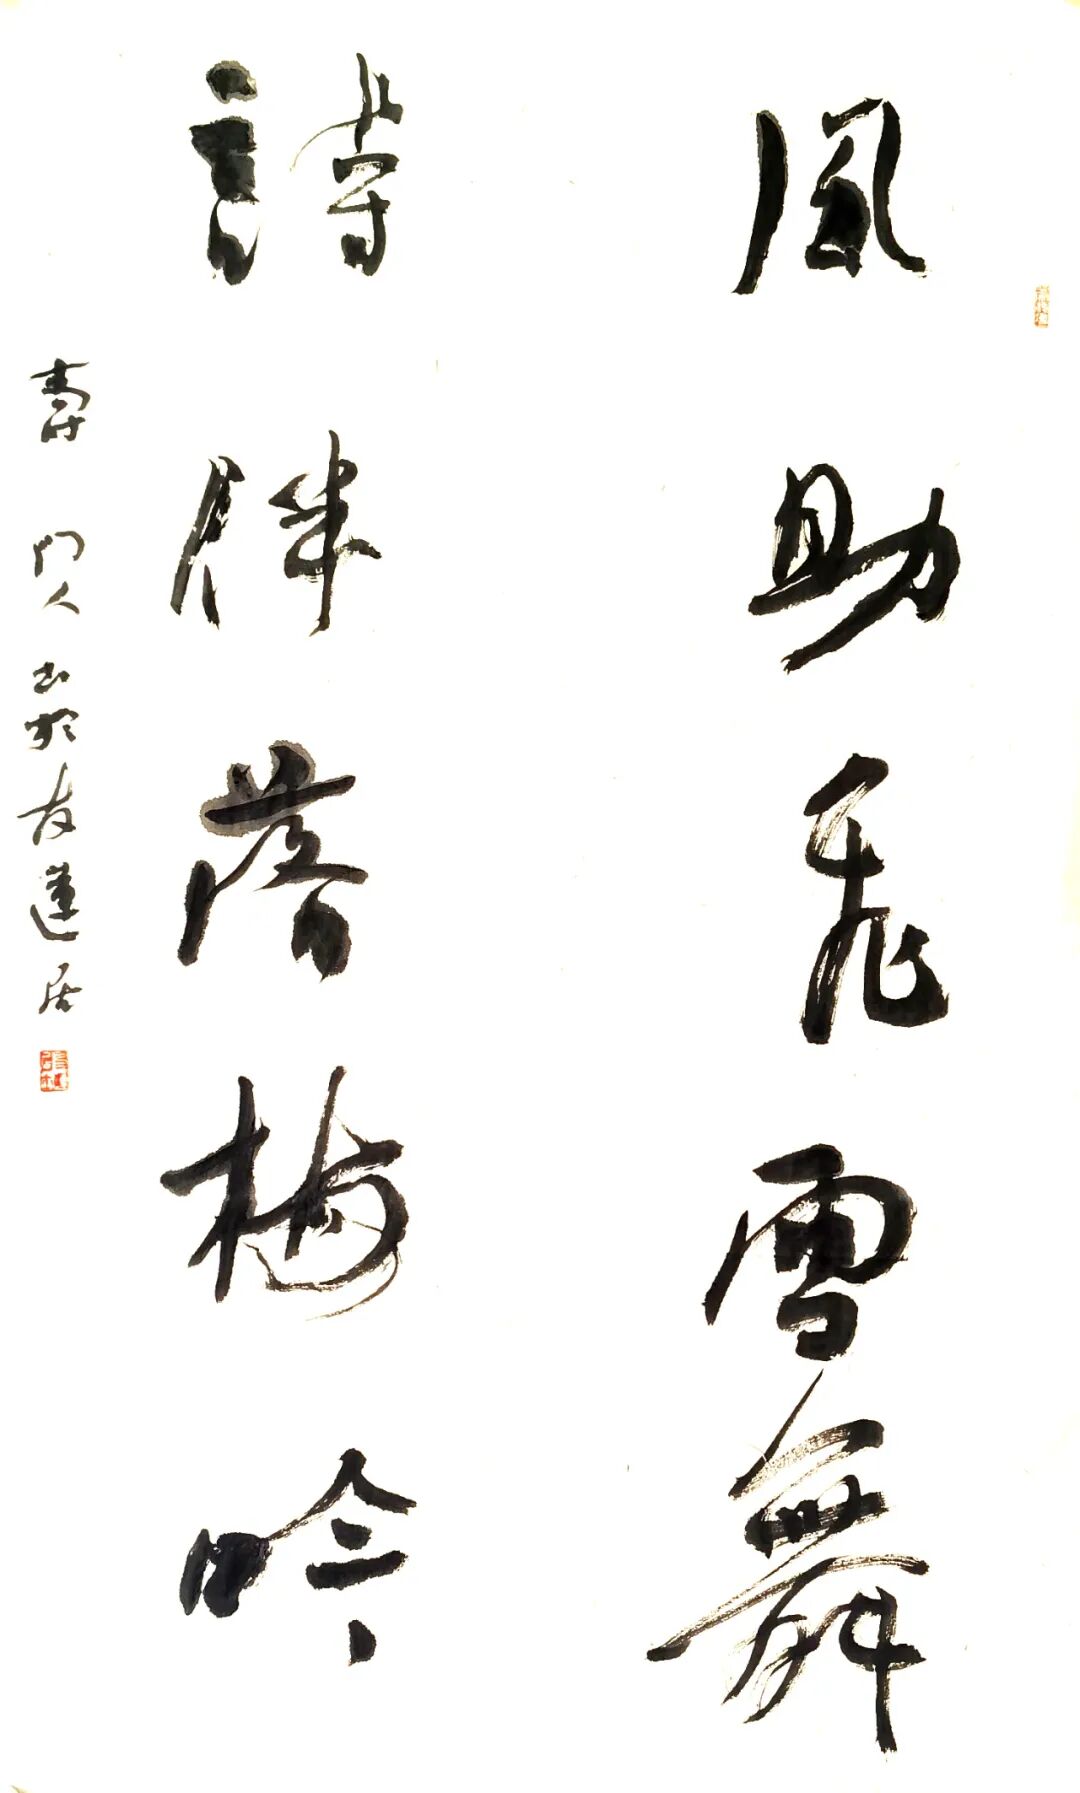 風助飛雪舞
詩伴落梅吟
壽門人書於友蓮居